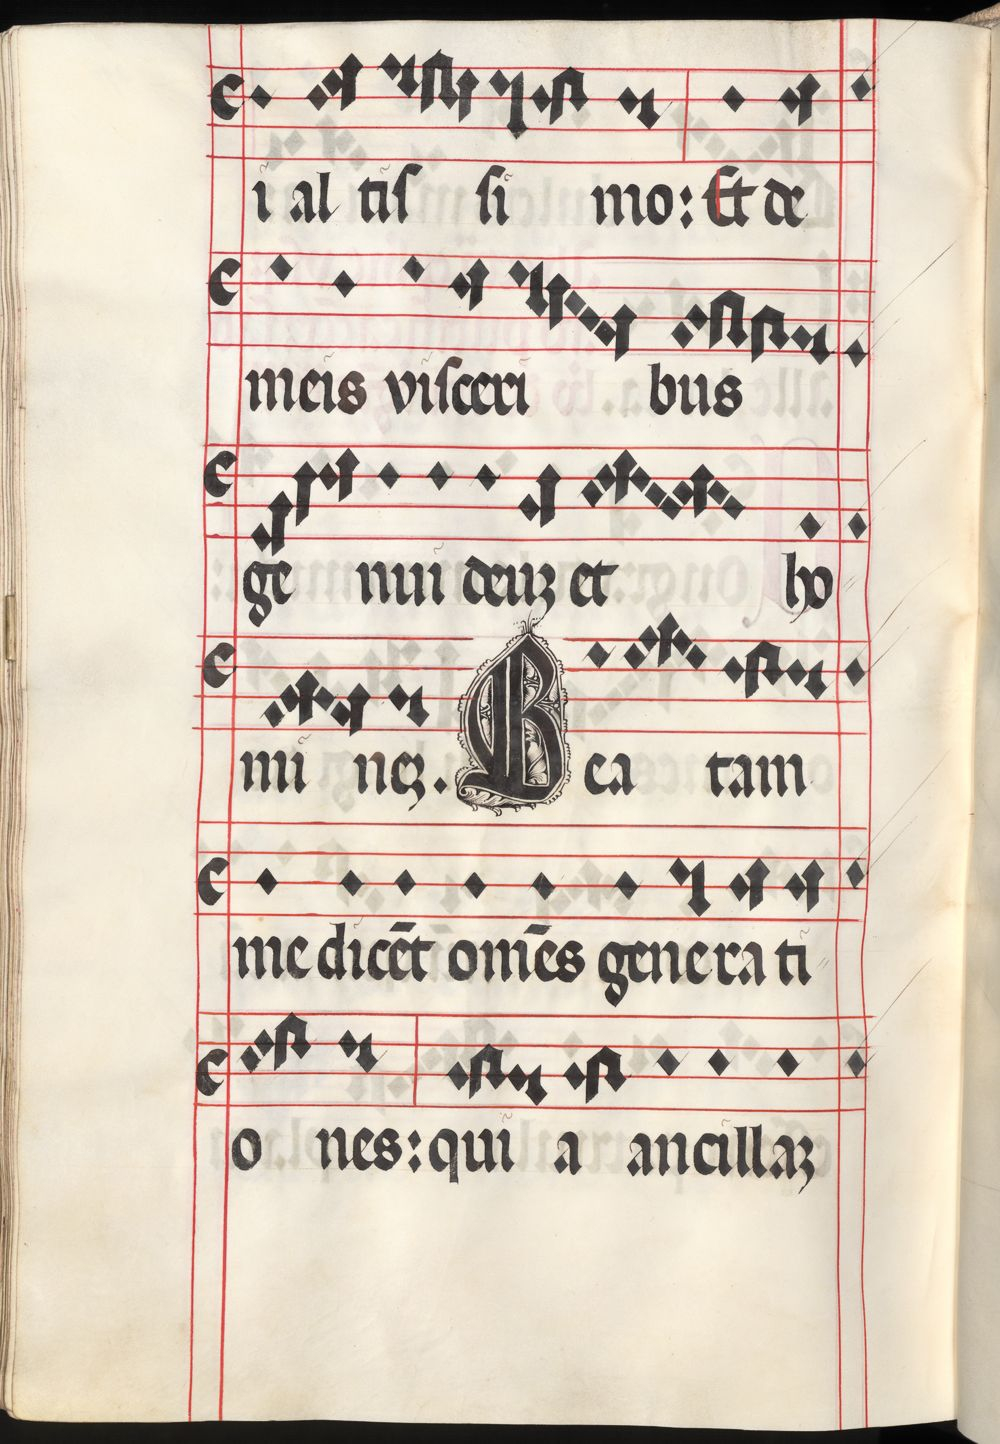 i al tis si mo: Et de
meis visceri bus
ge nui deuz et ho
mi nez. Bea tam
me dicēt om̄es genera ti
o nes: qui a ancillaz